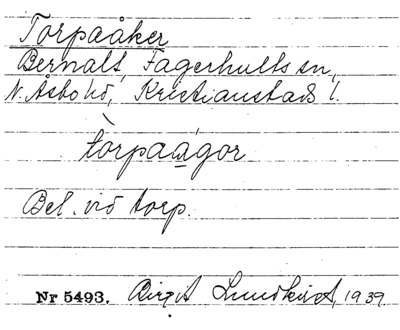 Torpaåker
Bernalt, Fagerhults sn,
N. Åsbo hd, Kristianstads l.
tòrpaágor
Bel. vid torp.
Nr 5493. Birgit Lundkvist, 1939.